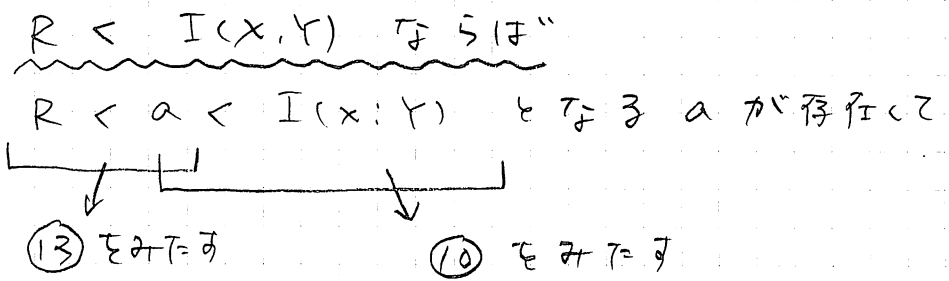 R < I(X,Y) ならば
R < a < I(X:Y) となる a が存在して
⑬ をみたす ⑩ をみたす